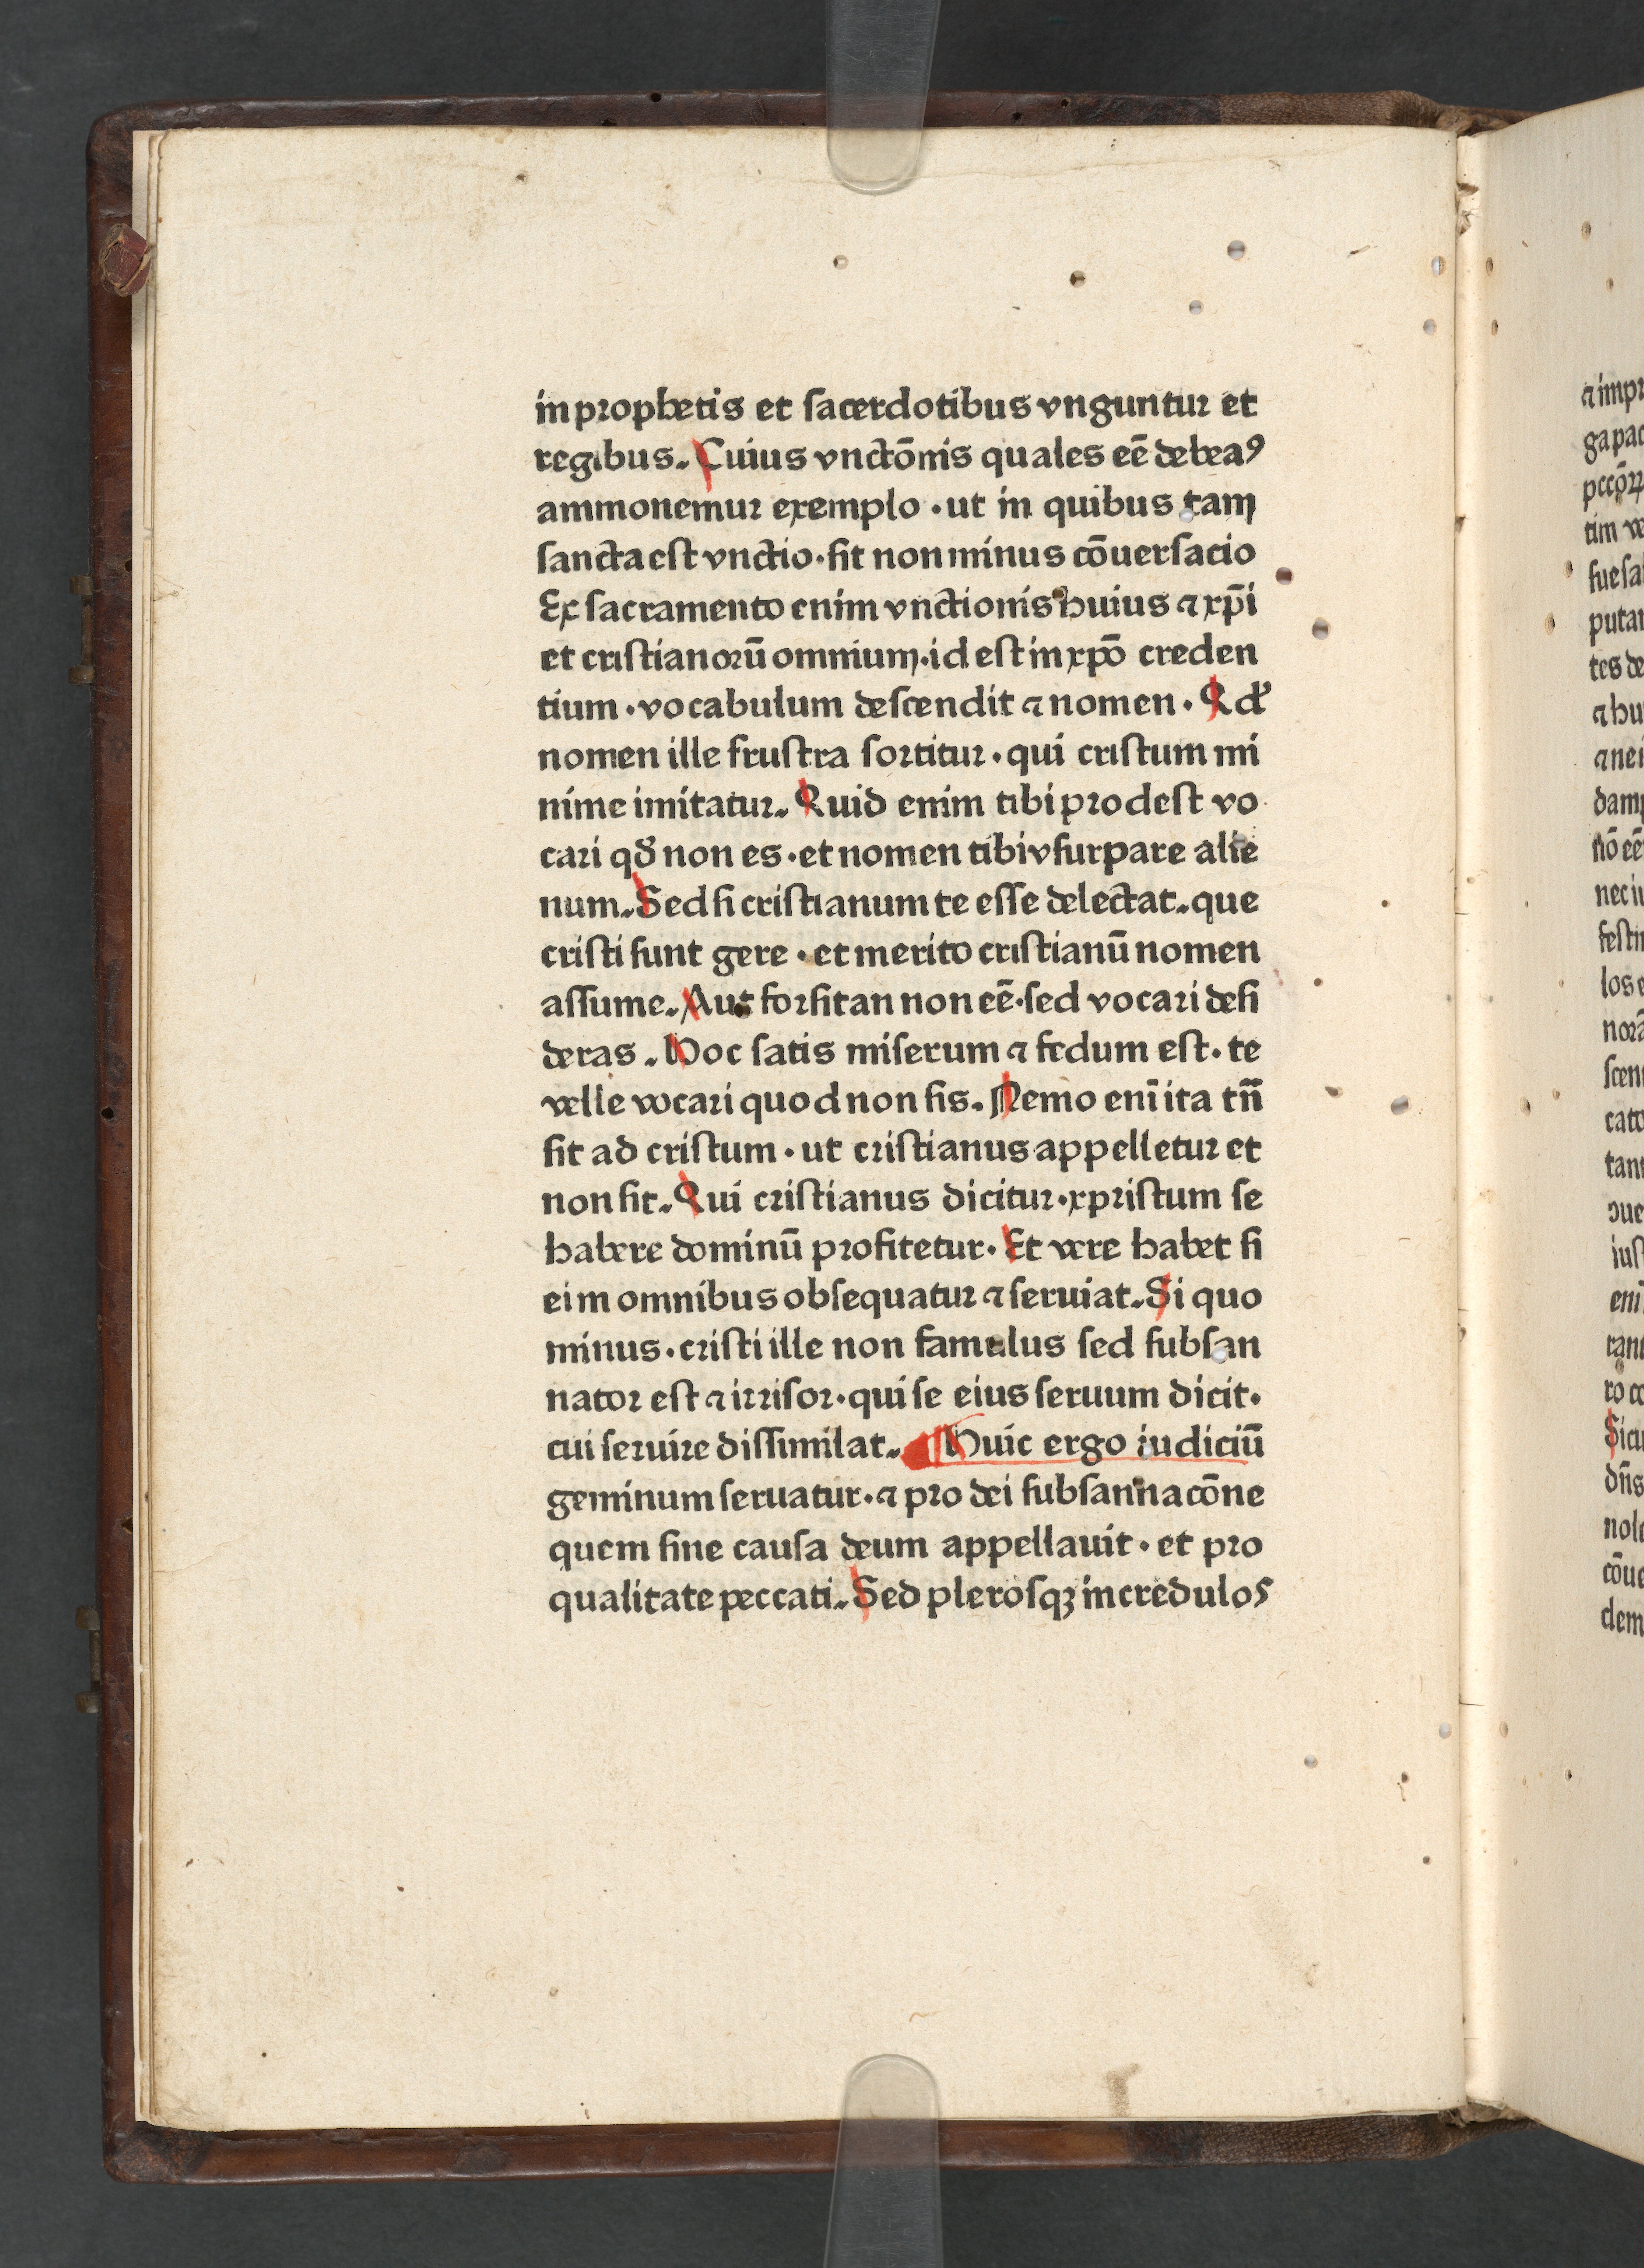 in prophetis et sacerdotibus vnguntur et
regibus. Cuius vnctōnis quales eē debeaꝰ
ammonemur exemplo · ut in quibus tam
sancta est vnctio · sit non minus cōuersacio
Ex sacramento enim vnctionis huius ⁊ xp̄i
et cristianorū omnium · id est in xpō creden
tium · vocabulum descendit ⁊ nomen · Qd'
nomen ille frustra sortitur · qui cristum mi
nime imitatur. Quid enim tibi prodest vo
cari qđ non es · et nomen tibi vsurpare alie
num. Sed si cristianum te esse delectat. que
cristi sunt gere · et merito cristianū nomen
assume. Aut forsitan non eē · sed vocari desi
deras. Hoc satis miserum ⁊ fedum est · te
velle vocari quod non sis. Nemo eni̅ ita tn̄
fit ad cristum · ut cristianus appelletur et
non sit. Qui cristianus dicitur · xpristum se
habere dominū profitetur · Et vere habet si
ei in omnibus obsequatur ⁊ seruiat. Si quo
minus · cristi ille non famulus sed subsan
nator est ⁊ irrisor · qui se eius seruum dicit ·
cui seruire dissimilat. Huic ergo iudiciū
geminum seruatur · ⁊ pro dei subsannacōne
quem sine causa deum appellauit · et pro
qualitate peccati. Sed plerosqꝫ incredulos